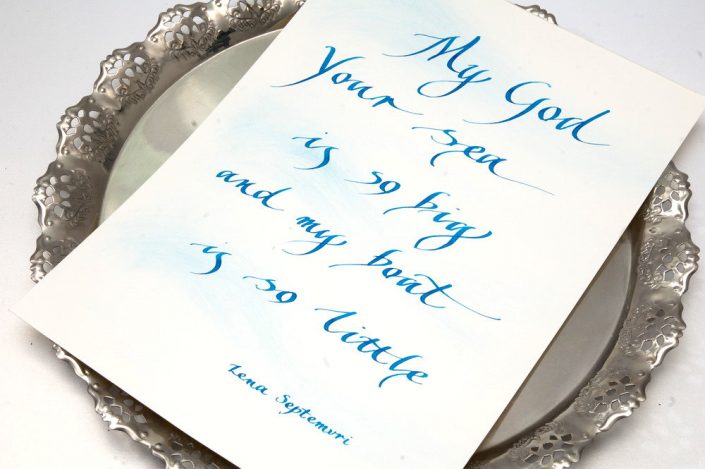 My God
Your sea
is so big
and my boat
is so little
Lena Septemvri